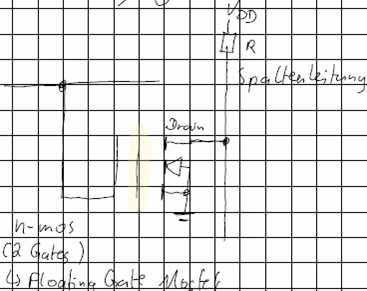 VDD
R
Spaltenleitung
Drain
n-mos
(2 Gates)
↳ Floating Gate Mosfet